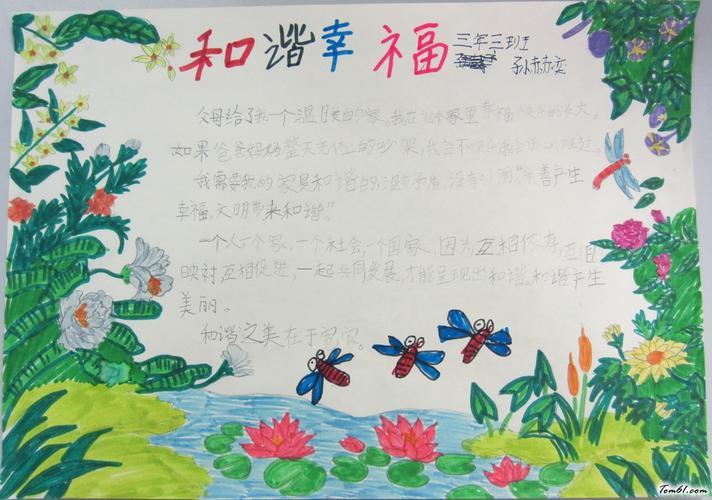 和谐幸福
三年三班
孙赫奕
父母给了我一个温暖的家。我在这个家里幸福快乐的长大。
如果爸爸妈妈整天无休止的吵架,我会不快乐我会
我需要我的家是和谐的,没有矛盾,没有吵闹"和善产生
幸福,文明带来和谐。"
一个人,一个家,一个社会,一个国家,因为互相依存,互相
映衬互相促进,一起共同发展,才能呈现出和谐。和谐产生
美丽。
和谐之美在于
Tom61.com